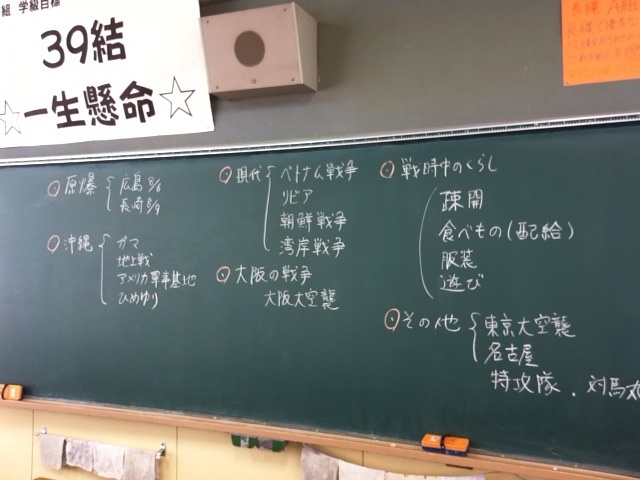 組 学級目標
39結
☆一生懸命☆
長縄 A組
⊙原爆 { 広島 8/6
長崎 8/9
⊙沖縄 { ガマ
地上戦
アメリカ軍事基地
ひめゆり
⊙現代 { ベトナム戦争
リビア
朝鮮戦争
湾岸戦争
⊙大阪の戦争
大阪大空襲
⊙戦時中のくらし
疎開
食べもの(配給)
服装
遊び
⊙その他 { 東京大空襲
名古屋
特攻隊、対馬丸